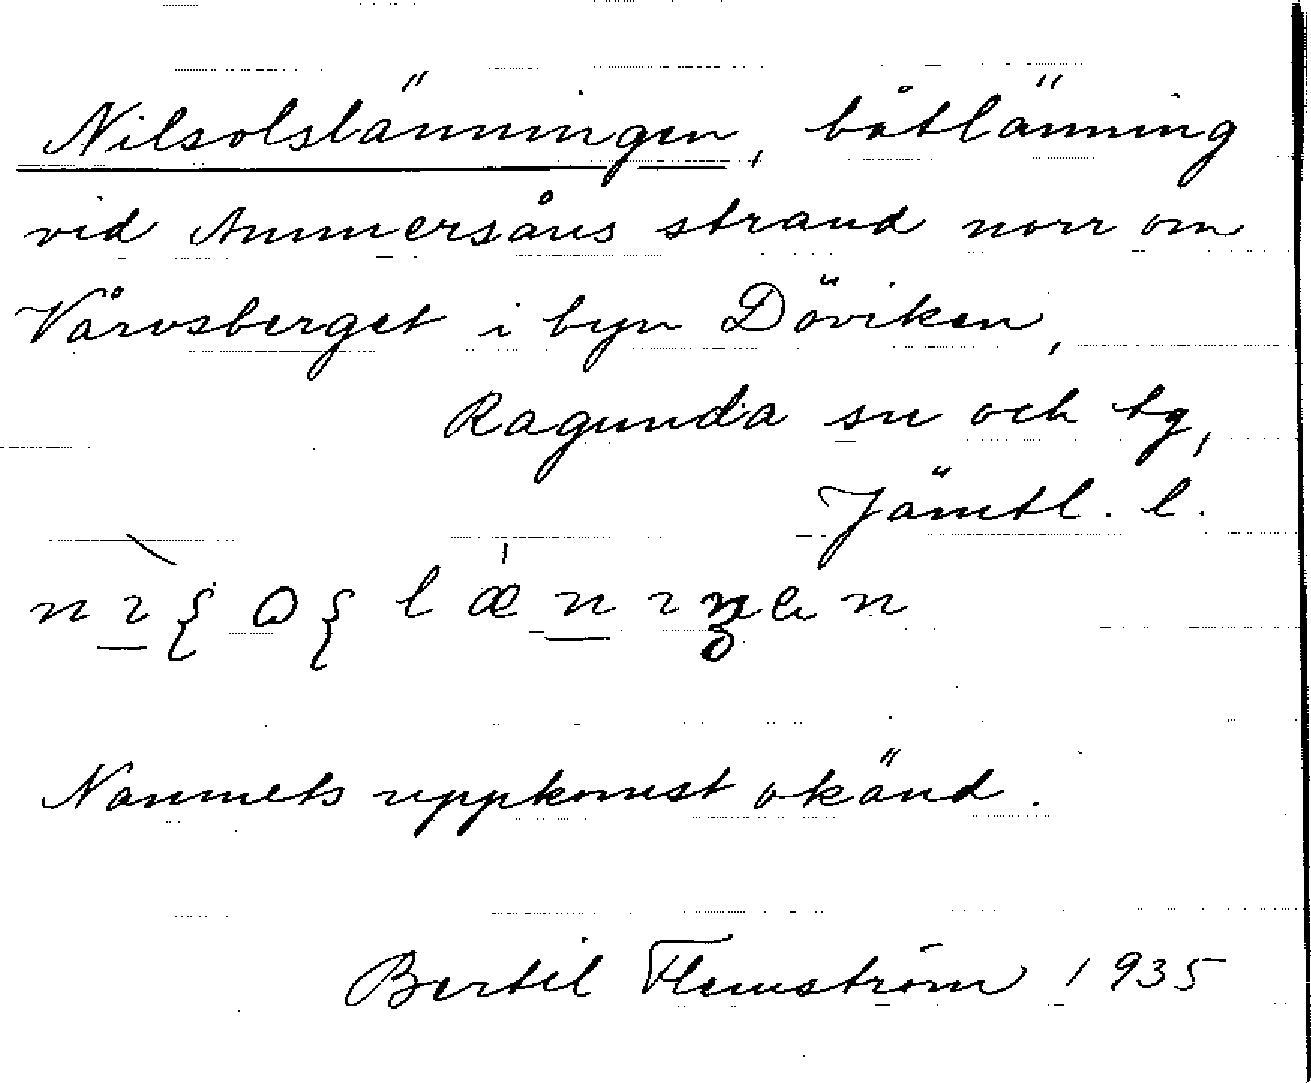 Nilsolslänningen, båtlänning
vid Ammersåns strand norr om
Vårvsberget i byn Döviken,
Ragunda sn och tg,
Jämtl. l.
Namnets uppkomst okänd.
Bertil Flemström 1935